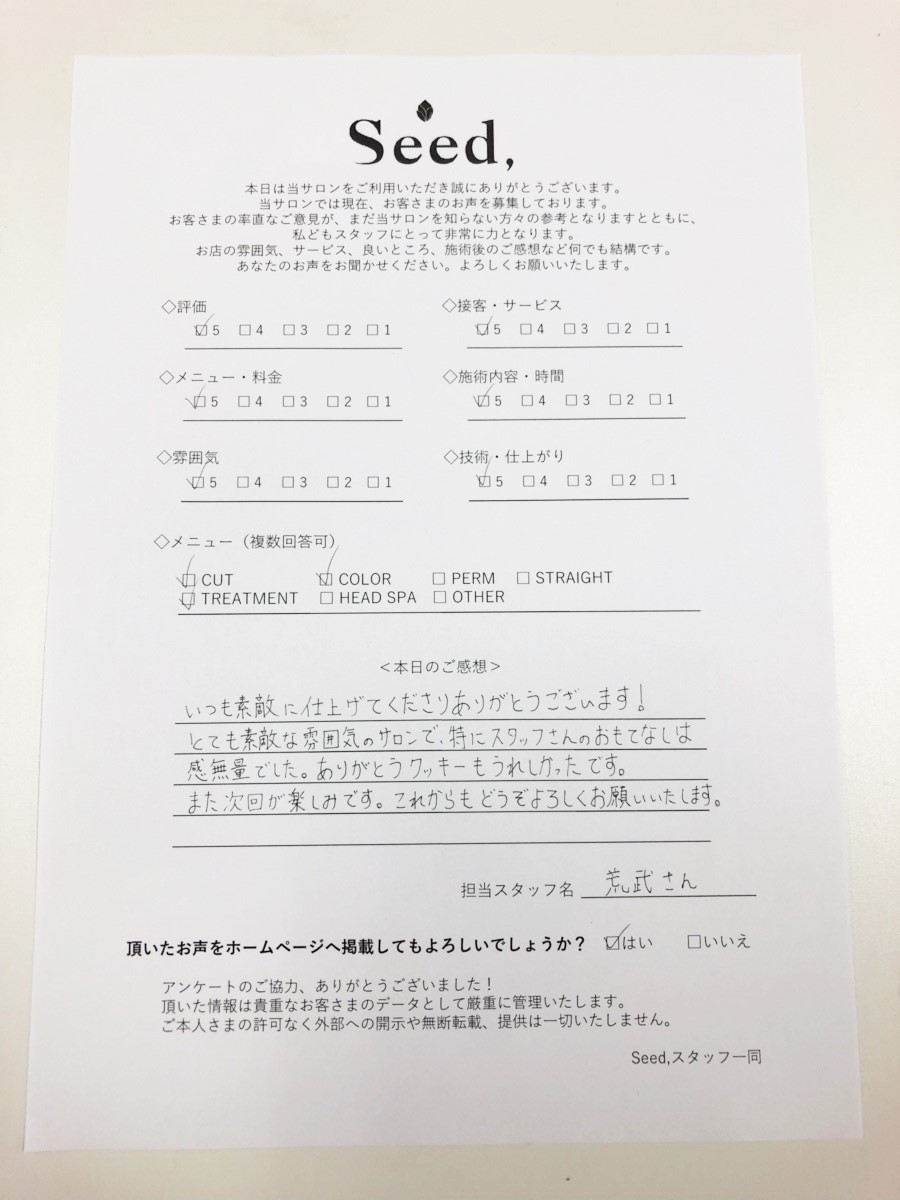 Seed,
本日は当サロンをご利用いただき誠にありがとうございます。
当サロンでは現在、お客さまのお声を募集しております。
お客さまの率直なご意見が、まだ当サロンを知らない方々の参考となりますとともに、
私どもスタッフにとって非常に力となります。
お店の雰囲気、サービス、良いところ、施術後のご感想など何でも結構です。
あなたのお声をお聞かせください。よろしくお願いいたします。
◇評価
☑5 □4 □3 □2 □1
◇接客・サービス
☑5 □4 □3 □2 □1
◇メニュー・料金
☑5 □4 □3 □2 □1
◇施術内容・時間
☑5 □4 □3 □2 □1
◇雰囲気
☑5 □4 □3 □2 □1
◇技術・仕上がり
☑5 □4 □3 □2 □1
◇メニュー（複数回答可）
☑CUT ☑COLOR □PERM □STRAIGHT
☑TREATMENT □HEAD SPA □OTHER
＜本日のご感想＞
いつも素敵に仕上げてくださりありがとうございます！
とても素敵な雰囲気のサロンで、特にスタッフさんのおもてなしは
感無量でした。ありがとうクッキーもうれしかったです。
また次回が楽しみです。これからもどうぞよろしくお願いいたします。
担当スタッフ名 荒武さん
頂いたお声をホームページへ掲載してもよろしいでしょうか？ ☑はい □いいえ
アンケートのご協力、ありがとうございました！
頂いた情報は貴重なお客さまのデータとして厳重に管理いたします。
ご本人さまの許可なく外部への開示や無断転載、提供は一切いたしません。
Seed,スタッフ一同